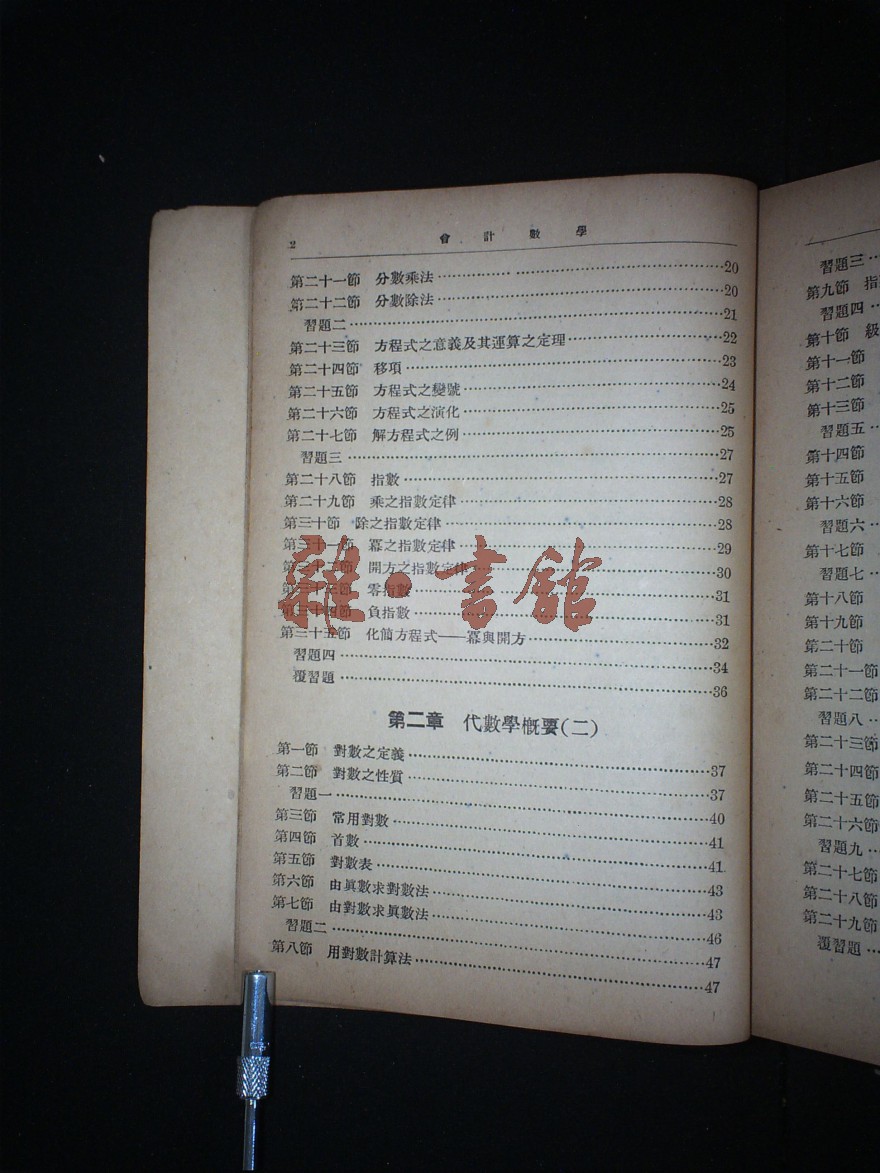 2 會計數學
第二十一節 分數乘法……20
第二十二節 分數除法……20
習題二……21
第二十三節 方程式之意義及其運算之定理……22
第二十四節 移項……23
第二十五節 方程式之變號……24
第二十六節 方程式之演化……25
第二十七節 解方程式之例……25
習題三……27
第二十八節 指數……27
第二十九節 乘之指數定律……28
第三十節 除之指數定律……28
第三十一節 冪之指數定律……29
第三十二節 開方之指數定律……30
第三十三節 零指數……31
第三十四節 負指數……31
第三十五節 化簡方程式——冪與開方……32
習題四……34
覆習題……36
第二章 代數學概要(二)
第一節 對數之定義……37
第二節 對數之性質……37
習題一……40
第三節 常用對數……41
第四節 首數……41
第五節 對數表……43
第六節 由眞數求對數法……43
第七節 由對數求眞數法……46
習題二……47
第八節 用對數計算法……47
雜·書館
習題三…
第九節 指
習題四…
第十節 級
第十一節
第十二節
第十三節
習題五…
第十四節
第十五節
第十六節
習題六…
第十七節
習題七…
第十八節
第十九節
第二十節
第二十一節
第二十二節
習題八…
第二十三節
第二十四節
第二十五節
第二十六節
習題九…
第二十七節
第二十八節
第二十九節
覆習題…